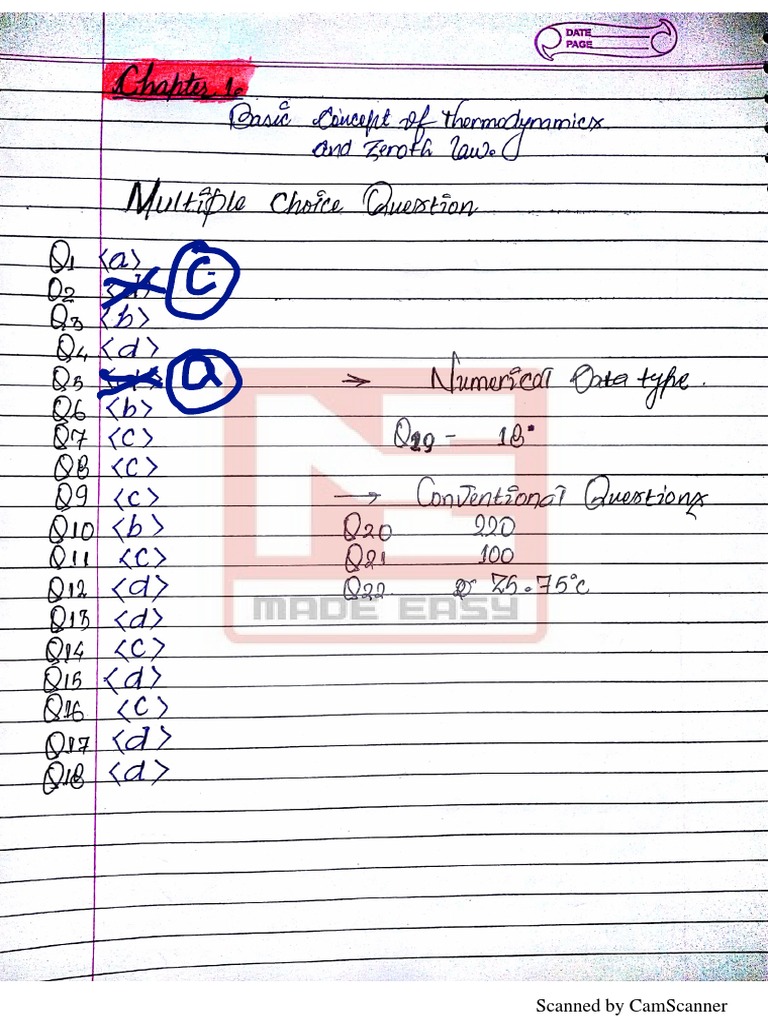 DATE
PAGE
Chapter 1.
Basic Concept of Thermodynamics
and Zeroth law.
Multiple Choice Question
Q1 <a>
Q2 C
Q3 <b>
Q4 <d>
Q5 a → Numerical Data type.
Q6 <b>
Q7 <c> Q19 - 18°
Q8 <c>
Q9 <c> → Conventional Questions
Q10 <b> Q20 220
Q11 <c> Q21 100
Q12 <d> Q22 75.75°c
MADE EASY
Q13 <d>
Q14 <c>
Q15 <d>
Q16 <c>
Q17 <d>
Q18 <d>
Scanned by CamScanner